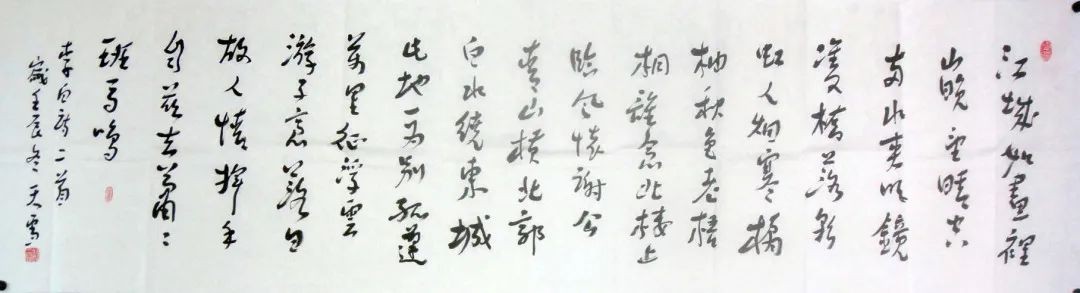 江城如畫裡
山晚望晴空
兩水夾明鏡
雙橋落彩
虹人烟寒橘
柚秋色老梧
桐誰念北樓上
臨風懷謝公
青山橫北郭
白水繞東城
此地一為別孤蓬
萬里征浮雲
游子意落日
故人情揮手
自茲去蕭〻
班馬鳴
李白詩二首
歲壬辰冬天